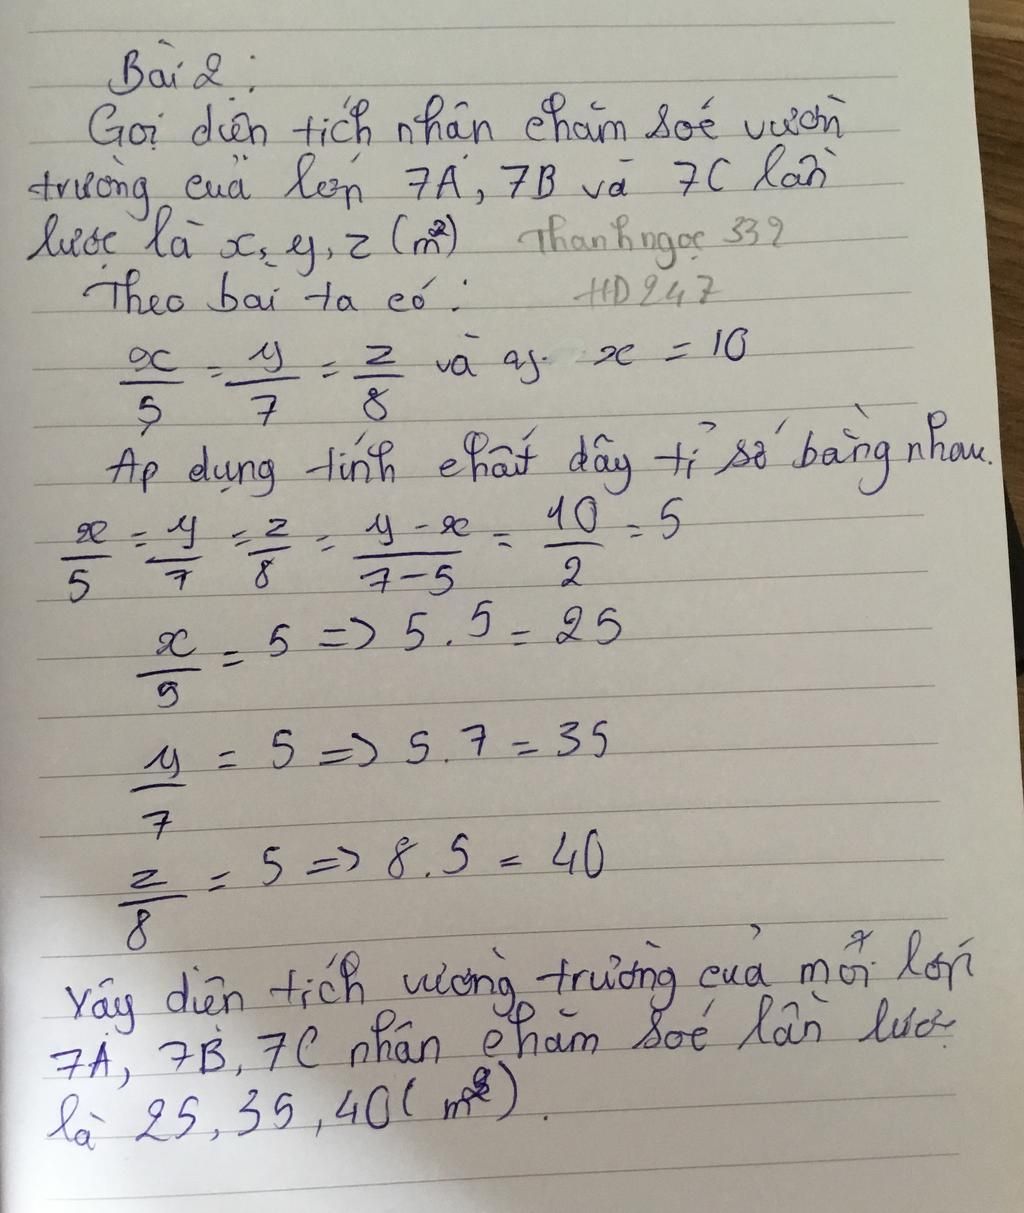 Bài 2 :
Gọi diện tích nhân chăm soé vườn
trường của lớp 7A, 7B và 7C lần
lược là x, y, z (m²) Thanhngọc 339
HD247
Theo bài ta có :
x/5 = y/7 = z/8 và y - x = 10
Áp dụng tính chất dãy tỉ số bằng nhau.
x/5 = y/7 = z/8 = y - x/7 - 5 = 10/2 = 5
x/5 = 5 => 5 . 5 = 25
y/7 = 5 => 5 . 7 = 35
z/8 = 5 => 8 . 5 = 40
Vậy diên tích vương trường của mỗi lớp
7A, 7B, 7C nhân chăm soé lần lược
là 25, 35, 40 ( m²) .